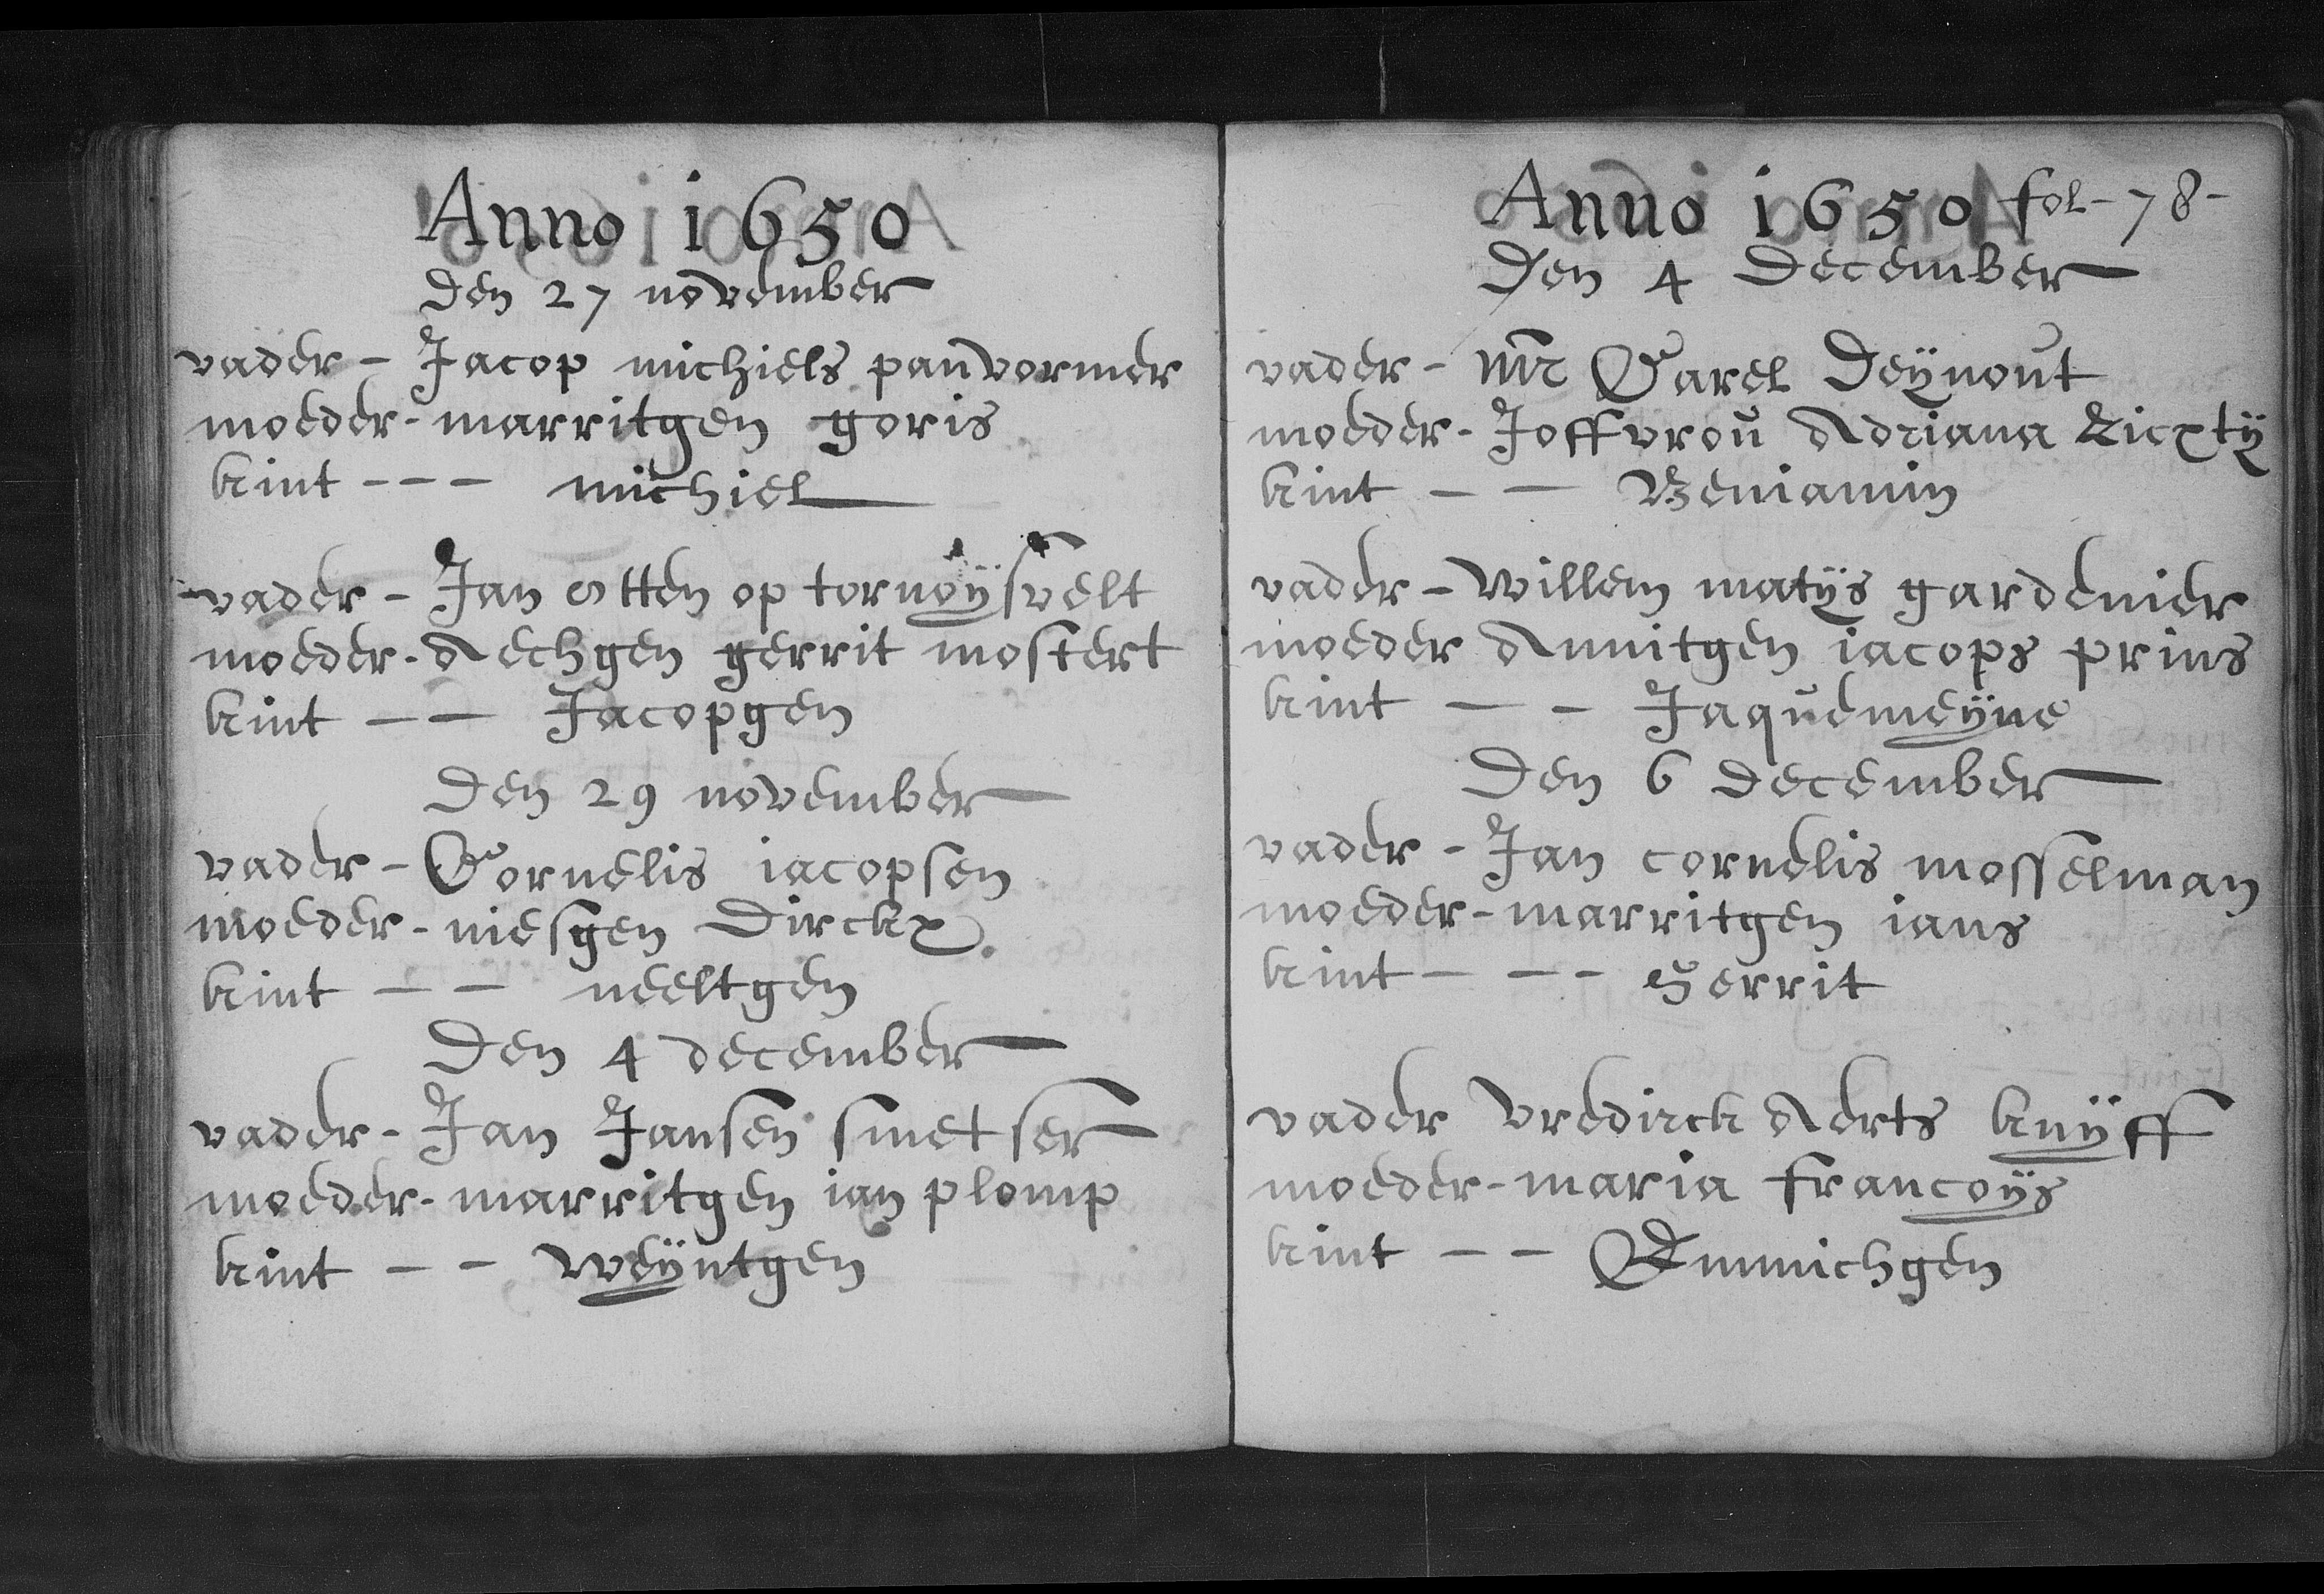 Anno 1650
Den 27 november
vader - Jacop michiels panvormer
moeder - marritgen goris
kint - - - michiel
vader - Jan otten op tornoysvelt
moeder - Aechgen gerrit mostert
kint - - Jacopgen
Den 29 november
vader - Cornelis iacopsen
moeder - niesgen Dirckx
kint - - neeltgen
Den 4 december
vader - Jan Jansen smetser
moeder - marritgen ian plomp
kint - - weÿntgen
Anno 1650 fol - 78 -
Den 4 December
vader - Mr Carel Deÿnout
moeder - Joffvrou Adriana
kint - - Beniamin
vader - willem matÿs gardenier
moeder Annitgen iacops prins
kint - - Jaquemeÿne
Den 6 December
vader - Jan cornelis mosselman
moeder - marritgen ians
kint - - - gerrit
vader vredirck Aerts knÿff
moeder - maria francoÿs
kint - - Emmichgen